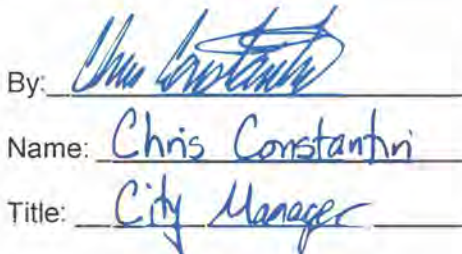 By: Chris Constantin
Name: Chris Constantin
Title: City Manager